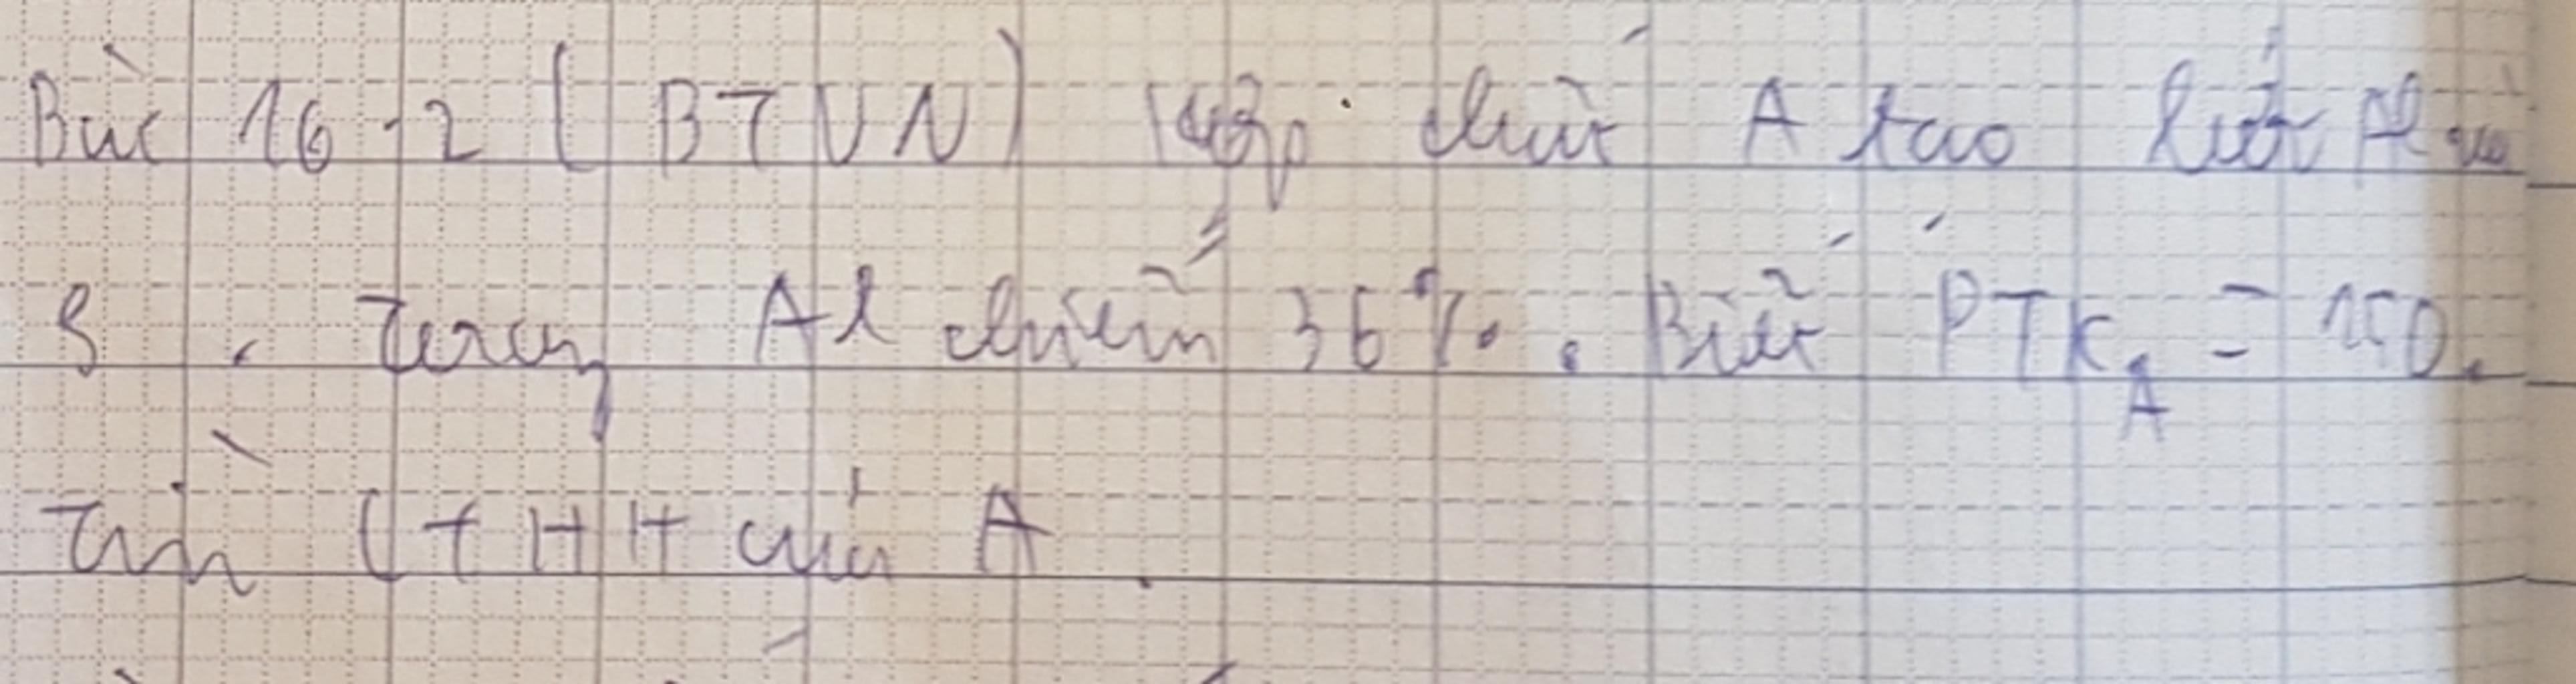 Bài 16.2 (BTVN) Hợp chất A tạo bởi Al và
S. Trong Al chiếm 36%. Biết PTKA = 150.
Tìm CTHH của A.